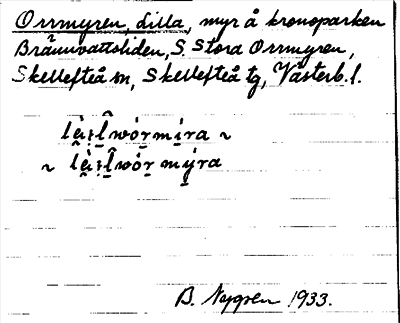 Orrmyren, dilla, myr å kronoparken
Brännvattsliden, S Stora Orrmyren,
Skellefteå sn, Skellefteå tg, Västerb. l.
B. Nygren 1933.